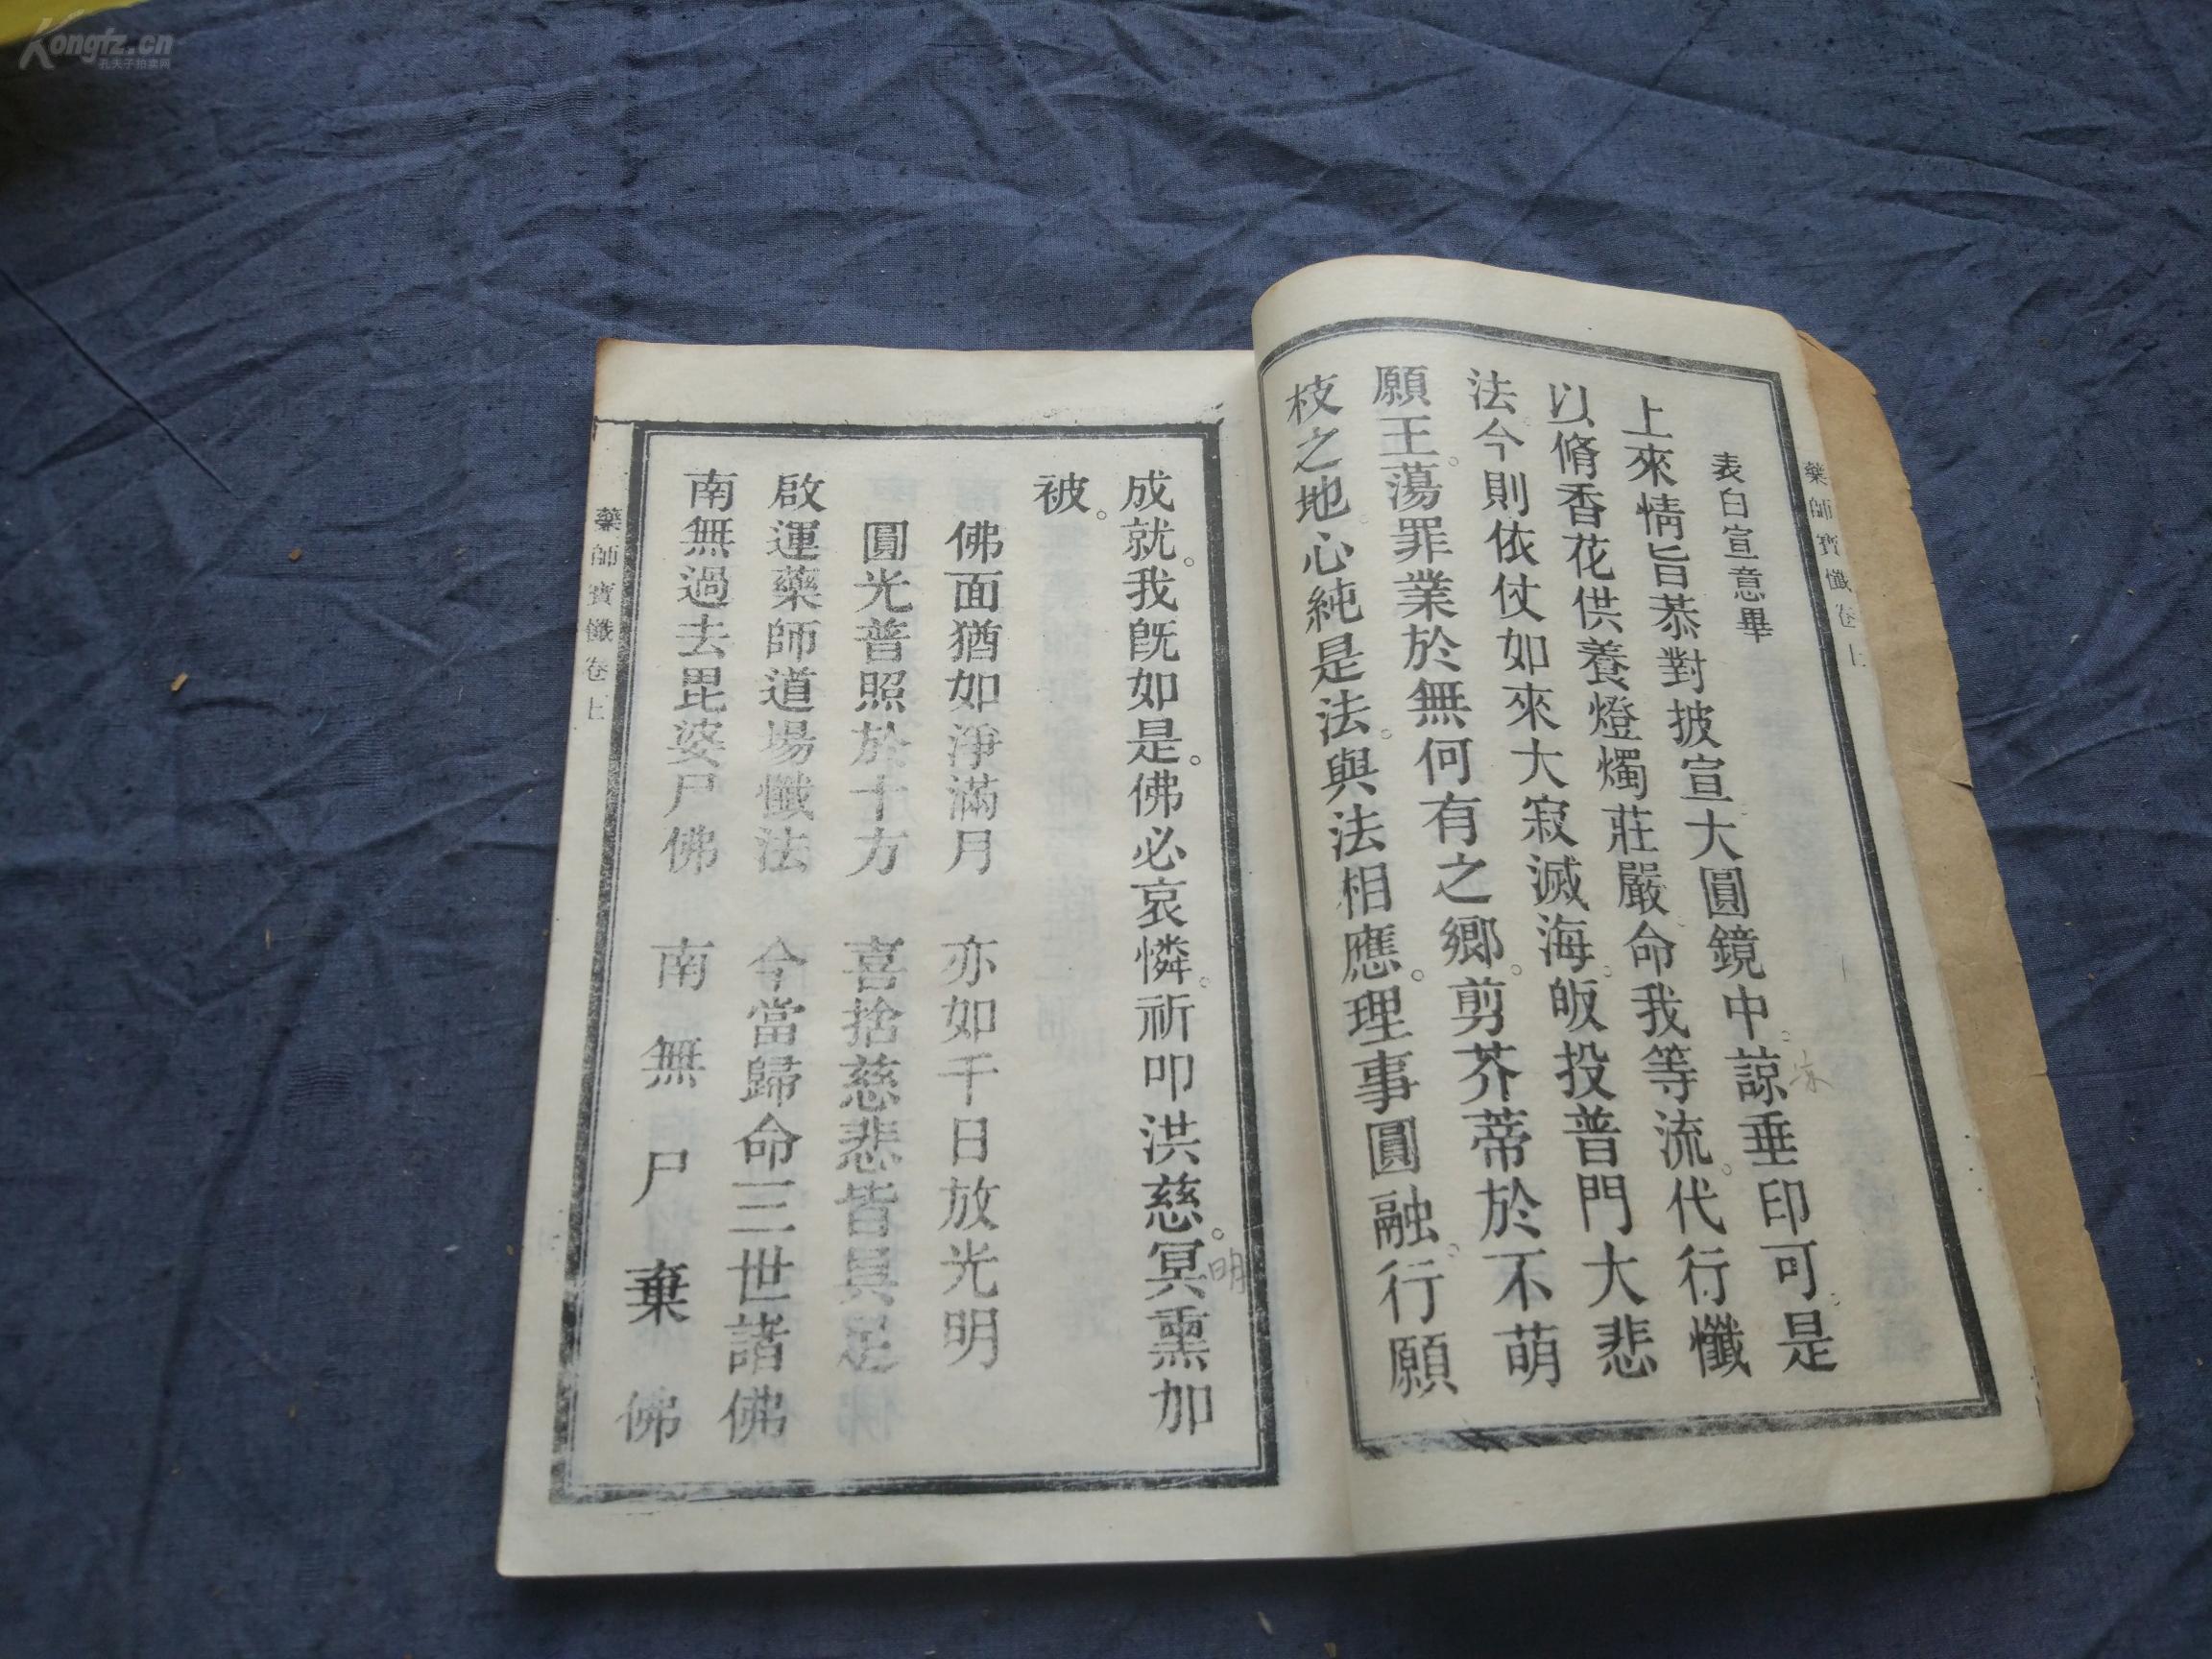 Kongfz.cn
孔夫子拍卖网
藥師寶懺卷上
表白宣意畢
上來情旨恭對披宣大圓鏡中。諒垂印可。是
以脩香花供養燈燭莊嚴。命我等流。代行懺
法。今則依仗如來大寂滅海。皈投普門大悲
願王。蕩罪業於無何有之鄉。剪芥蒂於不萌
枝之地。心純是法。與法相應。理事圓融。行願
成就。我既如是。佛必哀憐。祈叩洪慈。冥熏加
明
被。
佛面猶如淨滿月 亦如千日放光明
圓光普照於十方 喜捨慈悲皆具足
啟運藥師道場懺法 今當歸命三世諸佛
南無過去毘婆尸佛 南無尸棄佛
藥師寶懺卷上